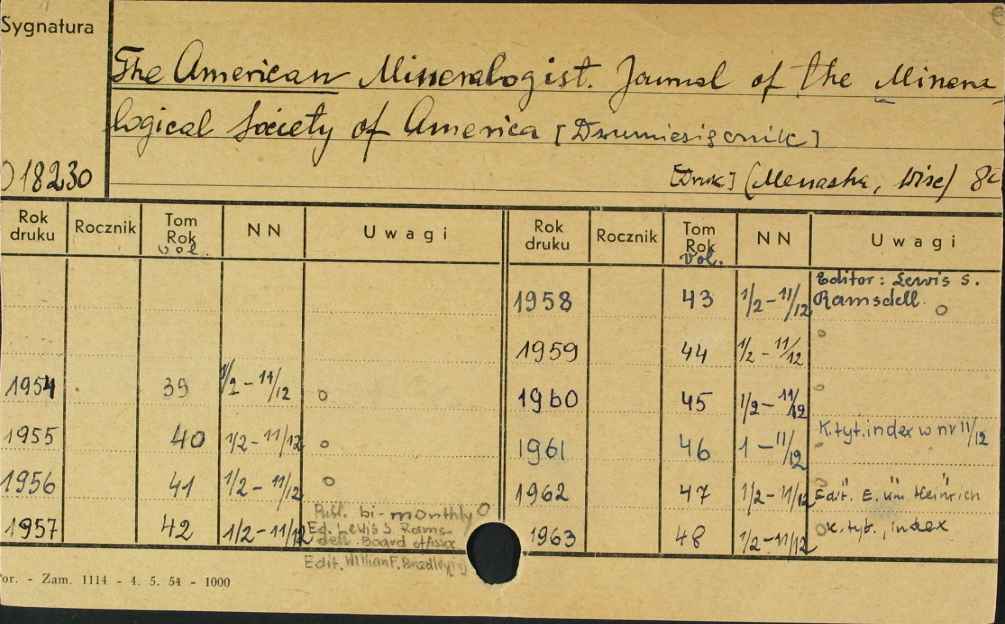 Sygnatura
The American Mineralogist. Journal of the Minera-
logical Society of America [Dwumiesięcznik]
18230
[Druk] (Menasha, Wisc) 8°
Rok druku Rocznik Tom Rok vol. NN Uwagi Rok druku Rocznik Tom Rok vol. NN Uwagi
1958 43 1/2-11/12 Editor: Lewis S. Ramsdell. o
1959 44 1/2-11/12 o
1954 39 1/2-11/12 o 1960 45 1/2-11/12 o
1955 40 1/2-11/12 o 1961 46 1-11/12 K.tyt. index w nr 11/12
1956 41 1/2-11/12 o 1962 47 1/2-11/12 Edit. E. Wm Heinrich
1957 42 1/2-11/12 Publ. bi-monthly o 1963 48 1/2-11/12 o k.tyt., index
Ed. Lewis S. Rams-
dell. Board of Assoc
Edit. William F. Bradley
or. - Zam. 1114 - 4. 5. 54 - 1000